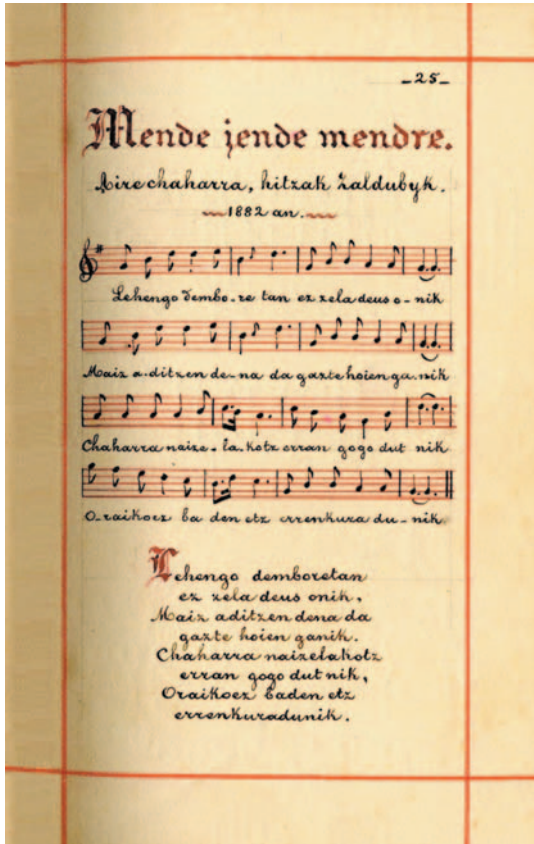 _25_
Mende jende mendre.
Aire chaharra, hitzak Zaldubyk.
1882 an.
Lehengo dembo-re tan ez zela deus o-nik
Maiz a-ditzen de-na da gazte hoien ga-nik
Chaharra naize-la-kotz erran gogo dut nik
O-raikoez ba den etz errenkura du-nik
Lehengo demboretan
ez zela deus onik,
Maiz aditzen dena da
gazte hoien ganik.
Chaharra naizelakotz
erran gogo dut nik,
Oraikoez baden etz
errenkuradunik.